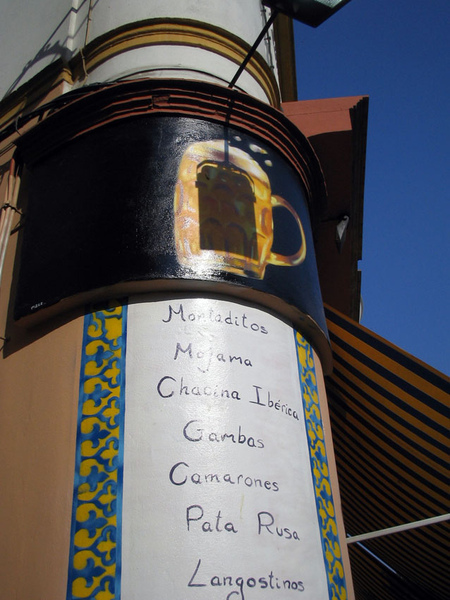 Montaditos
Mojama
Chacina Ibérica
Gambas
Camarones
Pata Rusa
Langostinos